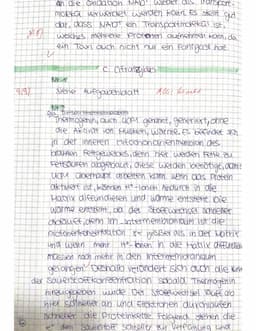 an die Oxidation NAD⁺ wieder als Transport-
molekül verwendet werden kann. Es steht gut
dar, dass NAD⁺ ein Transportmolekül ist,
welches mehrere Protonen aufnehmen kann, da
ein Taxi auch nicht nur ein Fahrgast hat.
C. Citratzyklus
Siehe Aufgabenblatt
Thermogenin, auch UCP1 genannt, generiert, ohne
die Aktivität von Muskeln, Wärme. Es befindet sich
in der inneren Mitochondrienmembran des
braunen Fettgewebes, denn hier werden Fette zu
Fettsäuren abgebaut, diese werden benötigt, damit
UCP1 überhaupt arbeiten kann. Wenn das Protein
aktiviert ist, können H⁺-Ionen dadurch in die
Matrix diffundieren und Wärme entsteht. Die
Wärme entsteht, da der Stoffwechsel schneller
abläuft, denn im Intermembranraum ist die
Protonenkonzentration größer als in der Matrix
und wenn mehr H⁺-Ionen in die Matrix diffundieren
müssen nach mehr in den Intermembranraum
gelangen. Deshalb verändert sich auch die
der Sauerstoffkonzentration sobald Thermogenin
hinzugegeben wurde. Der Stoffwechsel läuft
schneller an und Elektronen durchlaufen
schneller die Proteinkette. Folgend stehen die
e⁻ dem Sauerstoff schneller zur Verfügung und